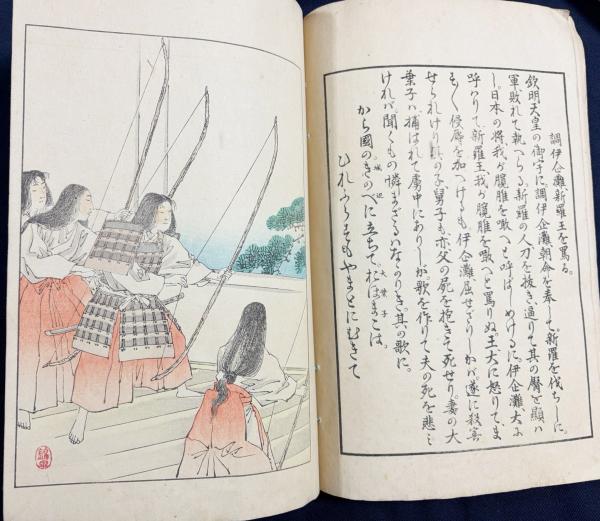 調伊企灘、新羅王を罵る。
欽明天皇の御宇に、調伊企灘朝命を奉じて、新羅を伐ちしに。
軍敗れて執へらる。新羅の人刀を抜き、逼りて其の臀を顕ハ
し。日本の将、我が臗脽を噉へと呼ばしめけるに。伊企灘、大ふ
呼ハりて、新羅王、我が臗脽を噉へと罵りぬ。王大に怒りてま
すく侵辱を加へけるも伊企灘屈せざりしかバ遂に殺害
せられけり。其の子舅子も亦父の屍を抱きて死せり。妻の大
葉子ハ捕はれて虜中にありしが。歌を作りて夫の死を悲し
けれバ聞くもの憐まざるハなかりき。其の歌に。
大葉子
から國のきのべに立ちて。大葉子は。
城辺
ひれふらすもやまとにむきて